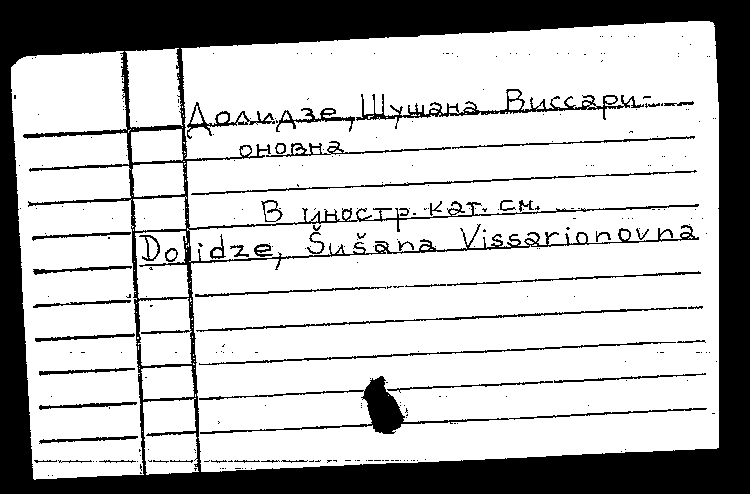 Долидзе, Шушана Виссари-
оновна
В иностр. кат. см.
Dolidze, Šušana Vissarionovna